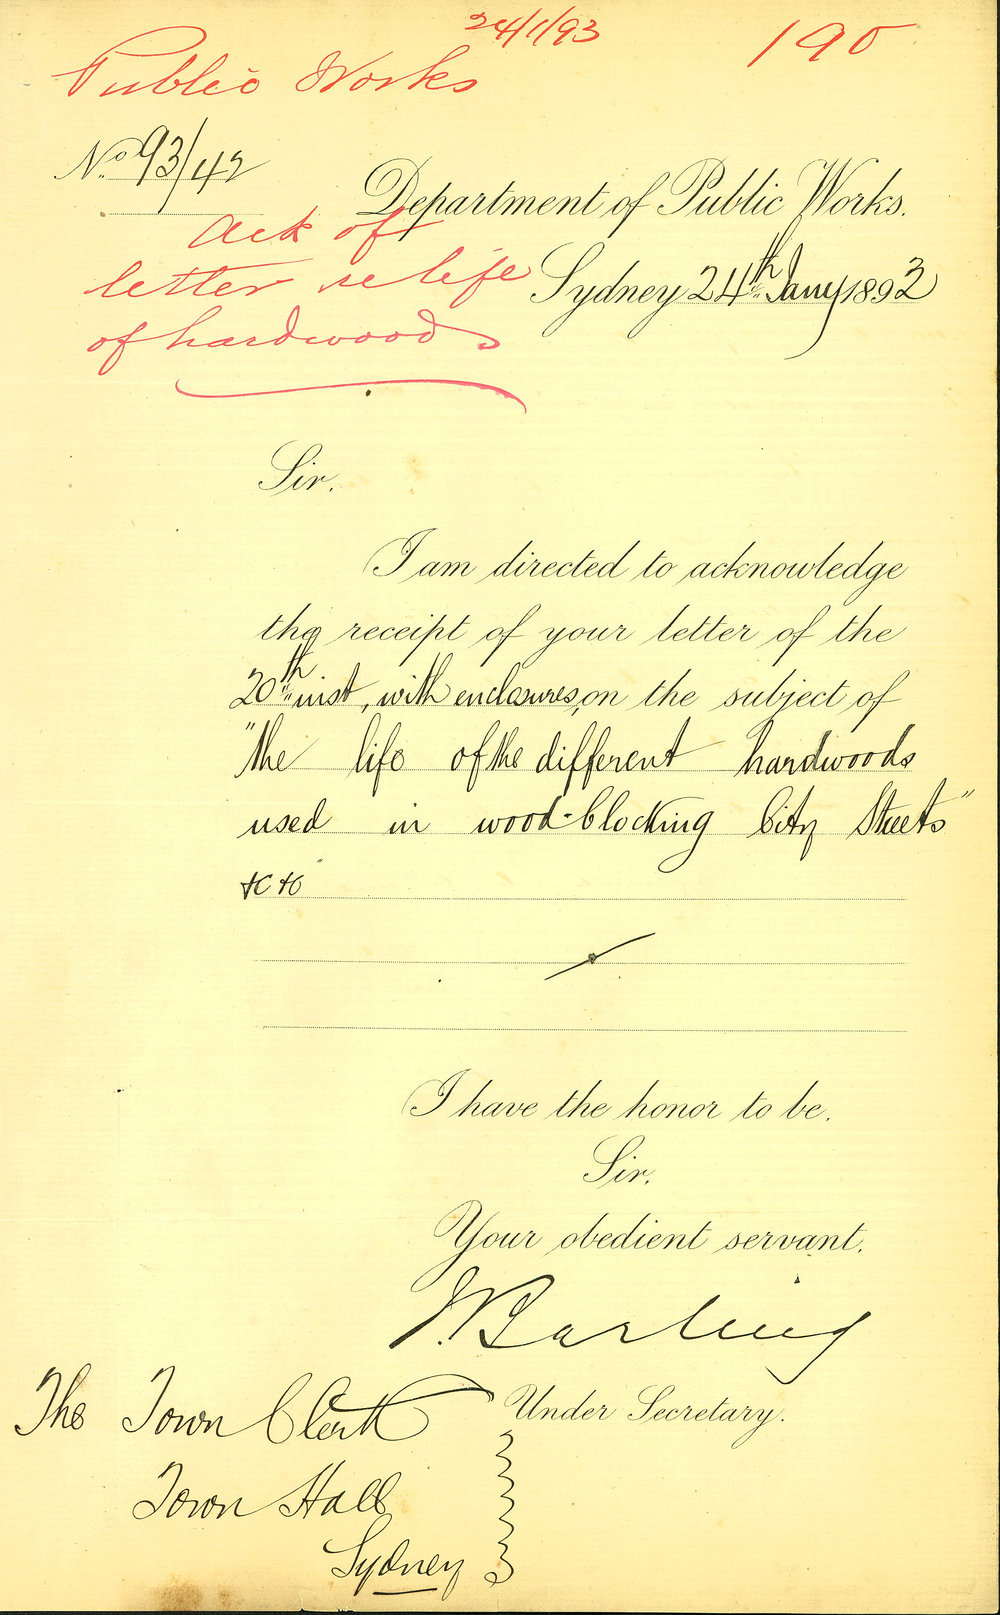 24/1/93
190
Public Works
No. 93/42
Department of Public Works.
Ack of
letter re life
of hardwoods
Sydney 24th Jany 1893
Sir,
I am directed to acknowledge
the receipt of your letter of the
20th inst, with enclosures, on the subject of
"the life of the different hardwoods
used in wood-blocking City Streets"
&c &c
I have the honor to be,
Sir,
Your obedient servant,
J Barling
Under Secretary.
The Town Clerk
Town Hall
Sydney